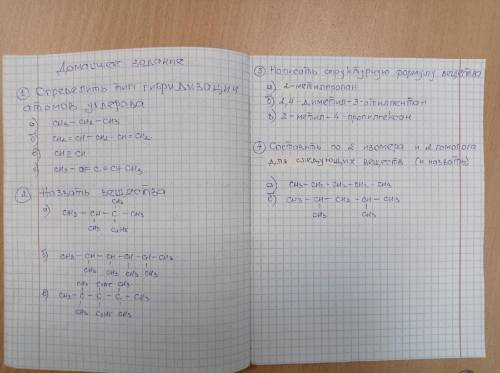 Домашнее задание
① Определить тип гибридизации
атомов углерода
а) CH3-CH2-CH3
б) CH2=CH-CH2-CH=CH2
в) CH≡CH
г) CH3- C=CH CH3
② Назвать вещества
CH3
а) CH3-CH-C-CH3
CH3 C2H5
б) CH3-CH-CH-CH-CH-CH3
CH3 CH3 CH3 CH3
CH3 C2H5 CH3
в) CH3-C-C-C-CH3
CH3 C2H5 CH3
③ Написать структурную формулу вещества
а) 2-метилпропан
б) 2,4-диметил-3-этилпентан
в) 2-метил-4-пропилгексан
④ Составить по 2 изомера и 2 гомолога
для следующих веществ (и назвать)
а) CH3-CH2-CH2-CH2-CH3
б) CH3-CH-CH2-CH-CH3
CH3 CH3